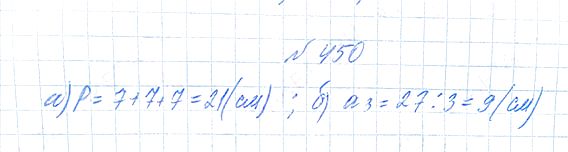 № 450
а) P = 7+7+7 = 21(см) ; б) a₃ = 27 : 3 = 9(см)